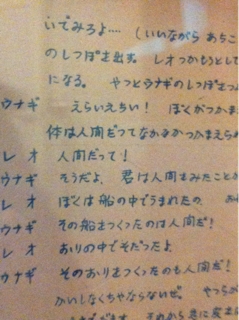 いでみろよ‥‥ (いいながら あちこ
のしっぽを出す。 レオつかもうとして
になる。 やっとウナギのしっぽをつ
ウナギ えらいえらい! ぼくがつかま
体は人間だってなかなかつかまえられ
レオ 人間だって!
ウナギ そうだよ、君は人間をみたことが
レオ ぼくは船の中でうまれたの、
ウナギ その船をつくったのは人間だ!
レオ おりの中でそだったよ
ウナギ そのおりをつくったのも人間だ!
かいしなくちゃならないぜ。 やつら